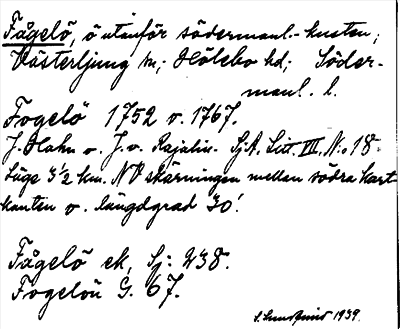 Fågelö, ö utanför södermanl.-kusten;
Västerljung sn; Hölebo hd; Söder-
manl. l.
Fogelö 1752 o. 1767.
J. Hahn o. J. v. Rajalin. Sj.A. Litt. III, N:o 18.
Läge 3½ km. NV skärningen mellan södra kart-
kanten o. längdgrad 30'.
Fågelö ek, Sj: 238.
Fogelön G. 67.
1939.